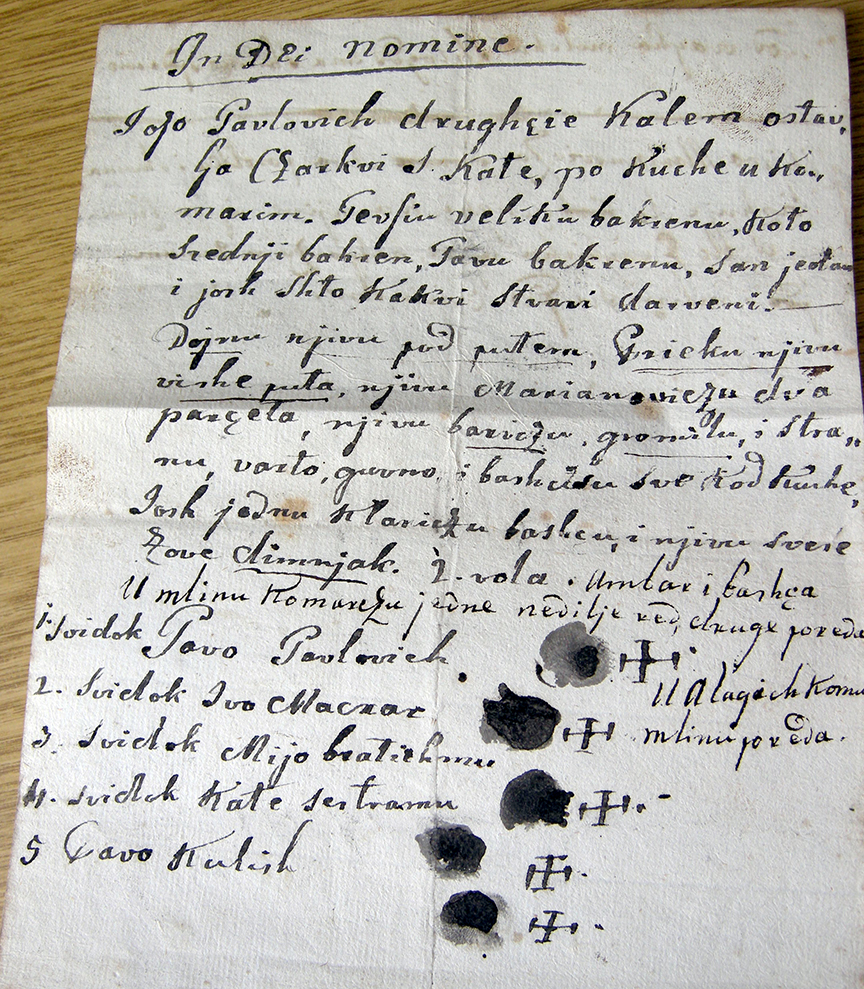 In Dei nomine.
Jozo Pavlovich drughçie Kalem ostav,
lja Czarkvi S. Kate, po Kuche u Ko,,
marim. Tevsiu veliku bakrenu, Koto
srednji bakren, Tavu bakrenu, san jedan
i josh shto Kakvi stvari darveni.
Dojnu njivu pod putem, Gricku njivu
vishe puta, njivu Marianoviczu dva
parçeta, njivu bariczu, gromilu, i stra,,
nu, varto, guvno, i bashcusu sve Kod Kuche,
Josh jednu Klariczu bashcu, i njivu svese
Zove dimnjak. 2. vola. Ambar i bashça
U mlinu Komarczu jedne nedilje red, druge poreda
1. Svidok Pavo Pavlovich
U Alagichkomu
2. Svidok Ivo Maczar
mlinu poreda.
3. Svidok Mijo bratichmu
4. svidok Kate sestramu
5 Davo Kulish